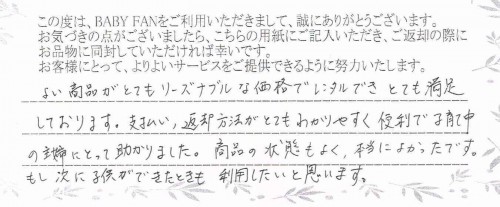 この度は、BABY FANをご利用いただきまして、誠にありがとうございます。
お気づきの点がございましたら、こちらの用紙にご記入いただき、ご返却の際に
お品物に同封していただければ幸いです。
お客様にとって、よりよいサービスをご提供できるように努力いたします。
よい商品がとてもリーズナブルな価格でレンタルでき とても満足
しております。支払い、返却方法がとてもわかりやすく便利で子育て中
の主婦にとって助かりました。商品の状態もよく、本当によかったです。
もし次に子供ができたときも利用したいと思います。